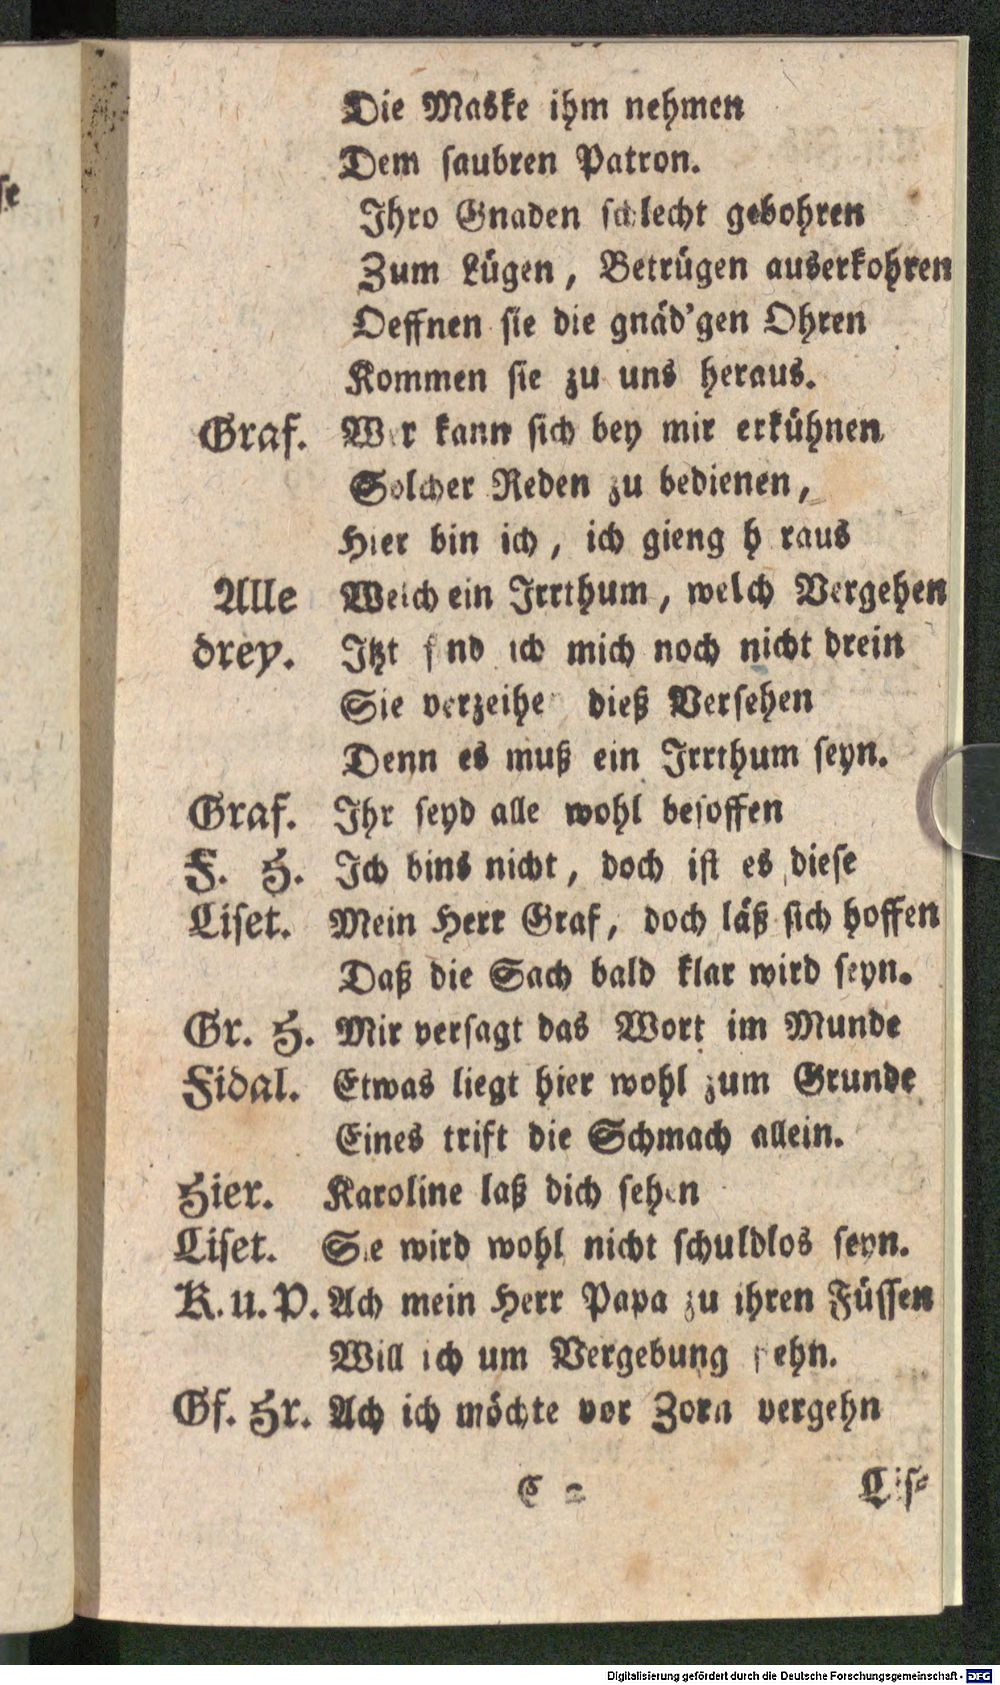 Die Maske ihm nehmen
Dem saubren Patron.
Ihro Gnaden schlecht gebohren
Zum Lügen, Betrügen auserkohren
Oeffnen sie die gnäd'gen Ohren
Kommen sie zu uns heraus.
Graf. Wer kann sich bey mir erkühnen
Solcher Reden zu bedienen,
Hier bin ich, ich gieng h raus
Alle Welch ein Irrthum, welch Vergehen
drey. Itzt find ich mich noch nicht drein
Sie verzeihe dieß Versehen
Denn es muß ein Irrthum seyn.
Graf. Ihr seyd alle wohl besoffen
F. H. Ich bins nicht, doch ist es diese
Liset. Mein Herr Graf, doch läß sich hoffen
Daß die Sach bald klar wird seyn.
Gr. H. Mir versagt das Wort im Munde
Fidal. Etwas liegt hier wohl zum Grunde
Eines trift die Schmach allein.
Hier. Karoline laß dich sehen
Liset. Sie wird wohl nicht schuldlos seyn.
K. u. P. Ach mein Herr Papa zu ihren Füssen
Will ich um Vergebung flehn.
Gf. Hr. Ach ich möchte vor Zorn vergehn
C 2 Lis-
Digitalisierung gefördert durch die Deutsche Forschungsgemeinschaft - DFG